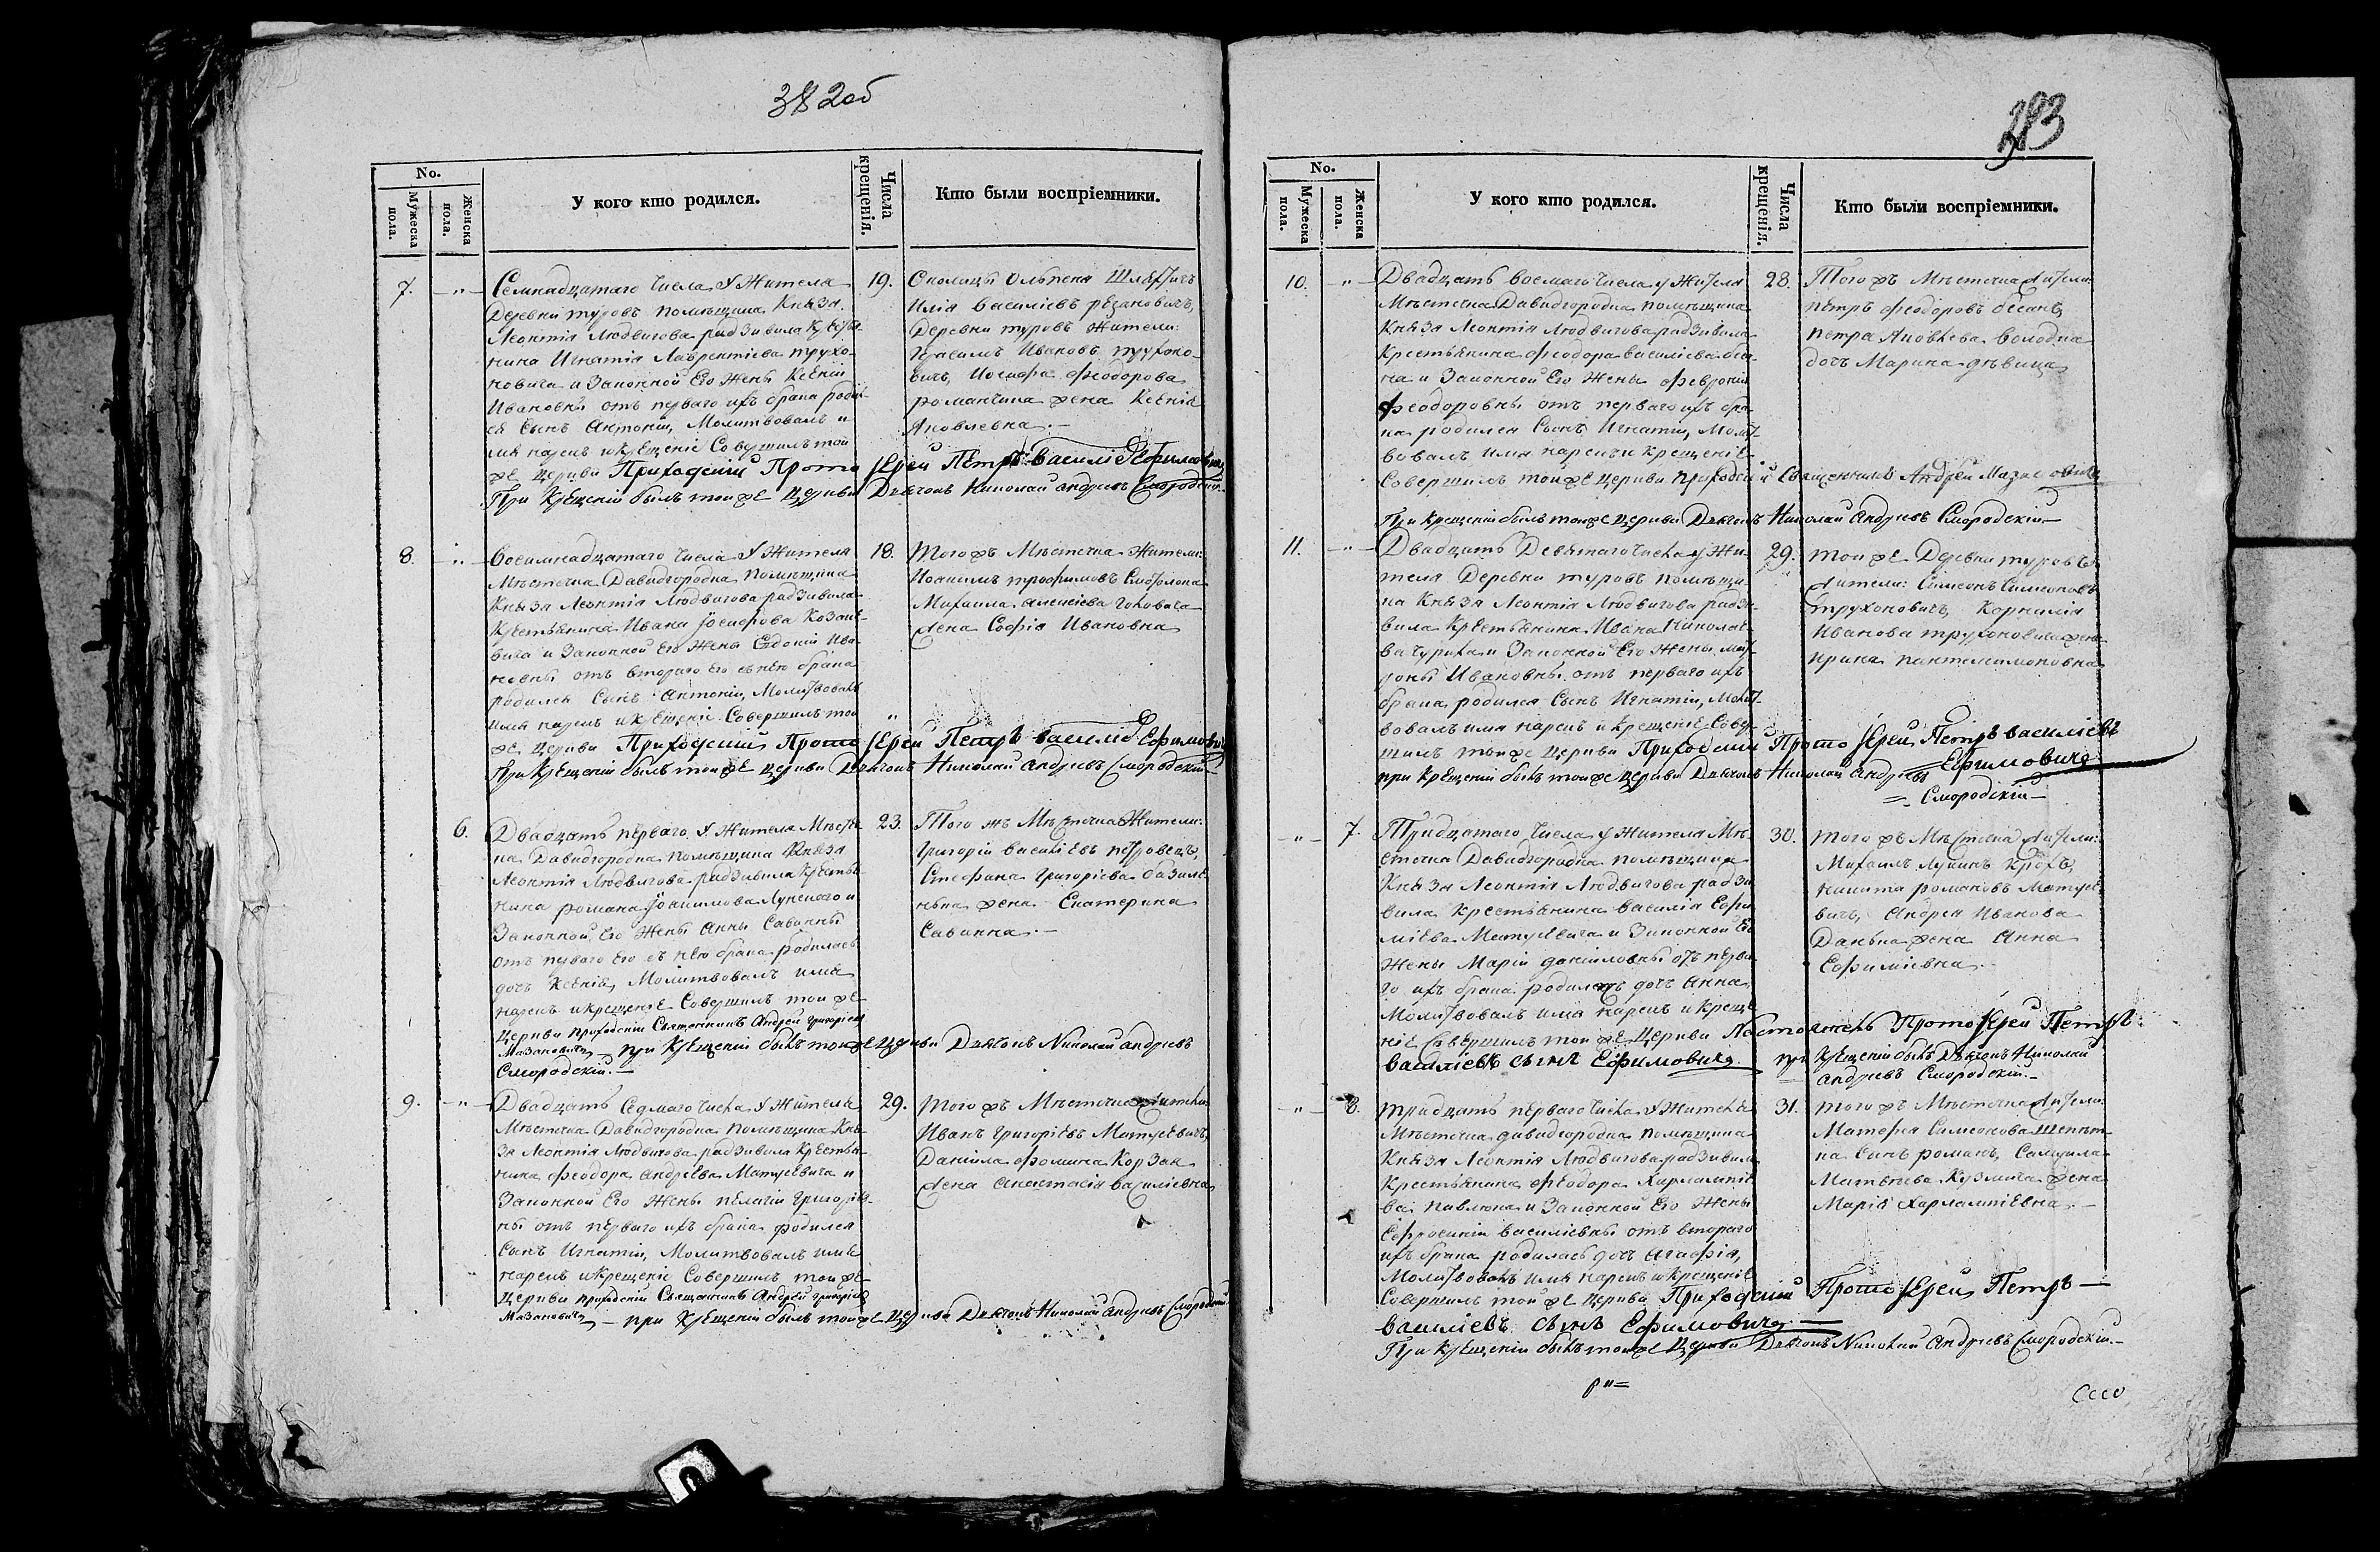 382об
No.
Мужеска пола.
Женска пола.
У кого кто родился.
Числа крещенія.
Кто были воспріемники.
7.
Семнадцатаго числа у жителя
деревни туровъ помѣщика Князя
Леонтія Людвигова радзивила крестья
нина Игнатія Лаврентіева трухо-
новича и законной его жены Ксеніи
Ивановны отъ перваго ихъ брака родил-
ся сынъ Антоній, Молитвовалъ и
имя нарекъ и крещеніе Совершилъ той
же церкви Приходскій Прото Іерей Петръ Василіе Ефимовичъ
При крещеніи былъ тойже церкви Діаконъ Николай андреевъ Смородскій
19.
Околицы Ольпеня Шляхтичъ
Илія василіевъ рѣзановичъ,
деревни туровъ жители:
Герасимъ Ивановъ трухоно-
вичъ, Иосифа феодорова
романчика жена Ксенія
Яковлевна.
8.
Восимнадцатаго числа у жителя
Мѣстечка Давидгородка помѣщика
Князя Леонтія Людвигова радзивила
крестьянина Ивана Іосифова Козаке-
вича и законной его жены Евдокіи Ива-
новны отъ втораго его съ нею брака
родился сынъ Антоній, Молитвовалъ
имя нарекъ и крещеніе Совершилъ той
же церкви Приходскій Прото Іерей Петръ василіе Ефимовичъ
При крещеніи былъ тойже церкви Діаконъ Николай андреевъ Смородскій
18.
Того жъ Мѣстечка жители:
Иоакимъ трофимовъ
Михаила алексіева
жена Софія Ивановна
6.
Двадцать перваго у жителя Мѣсте
ка Давидгородка помѣщика Князя
Леонтія Людвигова радзивила крестья
нина романа Іоакимова Лунскаго и
законной его жены Анны Савовны
отъ перваго его съ нею брака родилась
дочъ Ксенія, Молитвовалъ имя
нарекъ и крещеніе Совершилъ той же
церкви приходскій Священникъ Андрей григоріевъ
Мазановичъ – при крещеніи былъ тойже церкви Діаконъ Николай андреевъ
Смородскій.
23.
Того жъ Мѣстечка жители:
Григорій василіевъ петровецъ,
Стефана григоріева базиле
нька жена Екатерина
Савовна.
9.
Двадцать седмаго числа у жителя
Мѣстечка Давидгородка помѣщика Кня-
зя Леонтія Людвигова радзивила крестья-
нина феодора андреева Матусевича и
законной его жены пелагіи григоріев-
ны отъ перваго ихъ брака родился
сынъ Игнатій, Молитвовалъ имя
нарекъ и крещеніе Совершилъ той же
церкви приходскій Священникъ Андрей григоріевъ
Мазановичъ – при крещеніи былъ тойже церкви Діаконъ Николай андреевъ Смородскій
29.
Того жъ Мѣстечка жители
Иванъ григоріевъ Матусевичъ,
Даніила фомина Корзак
жена анастасія василіевна
No.
Мужеска пола.
Женска пола.
У кого кто родился.
Числа крещенія.
Кто были воспріемники.
10.
Двадцать восмаго числа у жителя
Мѣстечка Давидгородка помѣщика
Князя Леонтія Людвигова радзивила
крестьянина феодора василіева
на и законной его жены февроніи
феодоровны отъ перваго ихъ бра-
ка родился сынъ Игнатій, Молит-
вовалъ имя нарекъ и крещеніе
Совершилъ тойже церкви приходскій Священникъ Андрей Мазановичъ
При крещеніи былъ тойже церкви Діаконъ Николай андреевъ Смородскій
28.
Того жъ Мѣстечка жители
петръ феодоровъ
петра яковлева володка
дочъ Марина дѣвица
11.
Двадцать девятаго числа у жи-
теля деревни туровъ помѣщи-
ка Князя Леонтія Людвигова радзи-
вила крестьянина Ивана Николае-
ва и законной его жены мат-
роны Ивановны отъ перваго ихъ
брака родился сынъ Игнатій, молит-
вовалъ имя нарекъ и крещеніе совер-
шилъ тойже церкви Приходскій Прото Іерей Петръ василіевъ
Ефимовичъ
при крещеніи былъ тойже церкви Діаконъ Николай андреевъ
Смородскій
29.
той же деревни туровъ
жители: Симеонъ Симеоновъ
трухоновичъ, Корнилія
Иванова трухоновича жена
ирина пантелимоновна
7.
Тридцатаго числа у жителя Мѣ-
стечка Давидгородка помѣщика
Князя Леонтія Людвигова радзи
вила крестьянина василія Ефи
міева Матусевича и законной его
жены Маріи даніиловны отъ перва
го ихъ брака родилась дочъ анна,
Молитвовалъ имя нарекъ и креще
ніе Совершилъ той же церкви Настоятель Прото Іерей Петръ
василіевъ сынъ Ефимовичъ при крещеніи былъ Діаконъ Николай
андреевъ Смородскій.
30.
того жъ Мѣстечка жители:
Михаилъ лукинъ
никита романовъ Матусе
вичъ, Андрея Иванова
Данька жена Анна
Ефиміевна.
8.
тридцать перваго числа у жителя
Мѣстечка давидгородка помѣщика
Князя Леонтія Людвигова радзивила
крестьянина феодора харлампіе
ва павлюка и законной его жены
Ефросиніи василіевны отъ втораго
ихъ брака родилась дочъ агафія,
Молитвовалъ имя нарекъ и крещеніе
Совершилъ той же церкви Приходскій Прото Іерей Петръ
василіевъ сынъ Ефимовичъ
При крещеніи былъ тойже церкви Діаконъ Николай андреевъ Смородскій.
31.
того жъ Мѣстечка жители:
Матфея Симеонова
сынъ романъ, Самуила
Матвеева Кузмича жена
Марія харлампіевна.